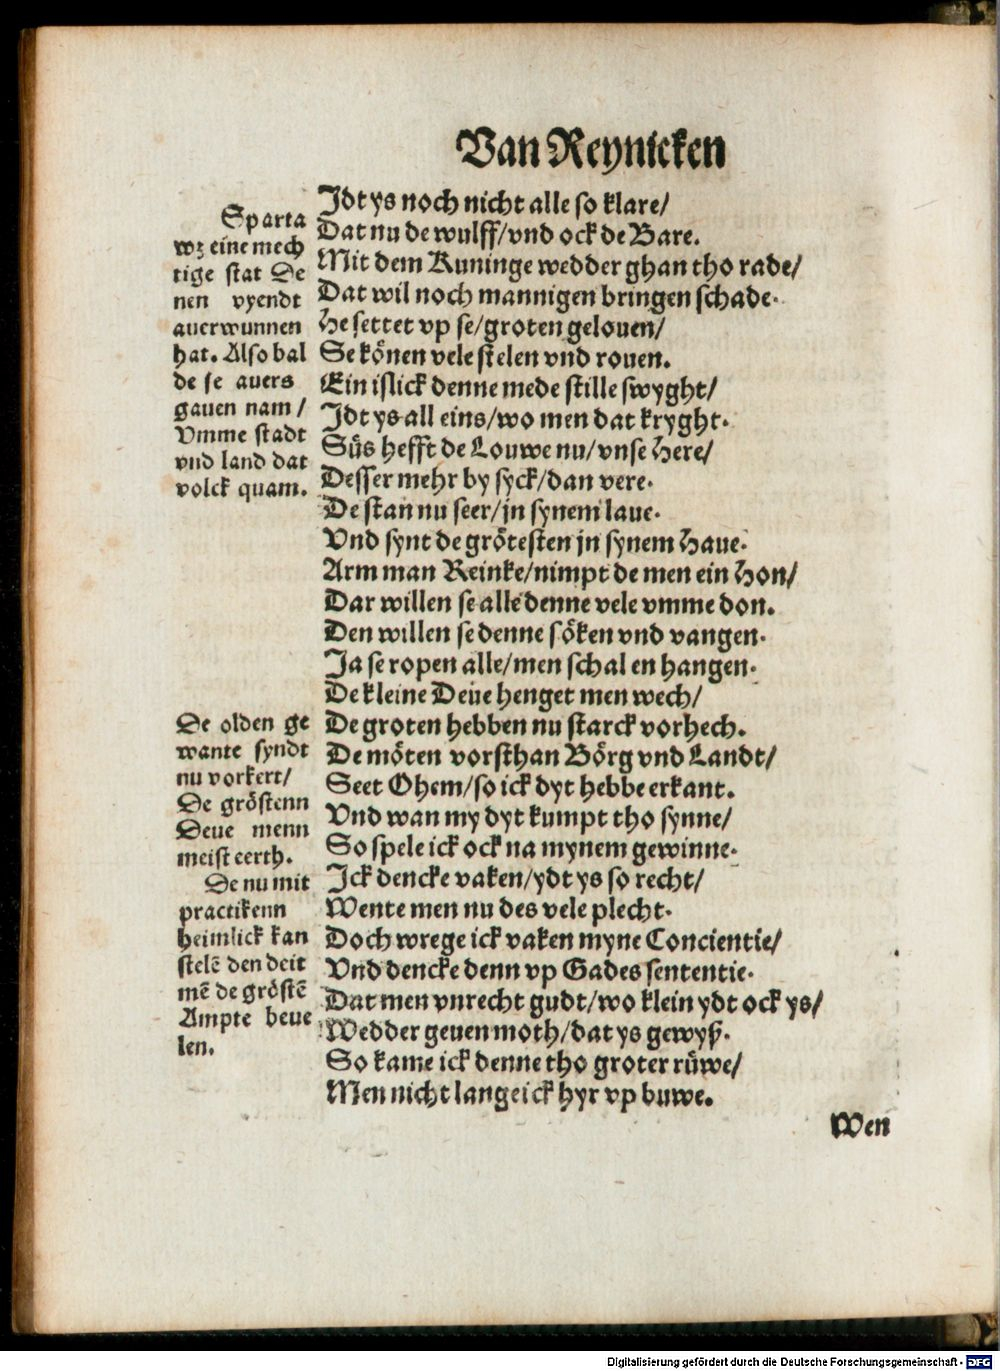 Van Reynicken
Sparta
wz eine mech
tige stat De
nen vyendt
auerwunnen
hat. Also bal
de se auers
gauen nam /
Vmme stadt
vnd land dat
volck quam.
Jdt ys noch nicht alle so klare/
Dat nu de wulff/vnd ock de Bare.
Mit dem Kuninge wedder ghan tho rade/
Dat wil noch mannigen bringen schade.
He settet vp se/groten gelouen/
Se koͤnen vele stelen vnd rouen.
Ein islick denne mede stille swyght/
Jdt ys all eins/wo men dat kryght.
Suͤs hefft de Louwe nu/vnse Here/
Desser mehr by syck/dan vere.
De stan nu seer/jn synem laue.
Vnd synt de groͤtesten jn synem Haue.
Arm man Reinke/nimpt de men ein Hon/
Dar willen se alle denne vele vmme don.
Den willen se denne soͤken vnd vangen.
Ja se ropen alle/men schal en hangen.
De kleine Deue henget men wech/
De groten hebben nu starck vorhech.
De moͤten vorsthan Boͤrg vnd Landt/
Seet Ohem/so ick dyt hebbe erkant.
Vnd wan my dyt kumpt tho synne/
So spele ick ock na mynem gewinne.
Jck dencke vaken/ydt ys so recht/
Wente men nu des vele plecht.
Doch wrege ick vaken myne Concientie/
Vnd dencke denn vp Gades sententie.
Dat men vnrecht gudt/wo klein ydt ock ys/
Wedder geuen moth/dat ys gewyß.
So kame ick denne tho groter ruͤwe/
Men nicht lange ick hyr vp buwe.
De olden ge
wante syndt
nu vorkert/
De groͤstenn
Deue menn
meist eerth.
De nu mit
practikenn
heimlick kan
stelē den deit
mē de groͤstē
Ampte beue
len.
Wen
Digitalisierung gefördert durch die Deutsche Forschungsgemeinschaft - DFG